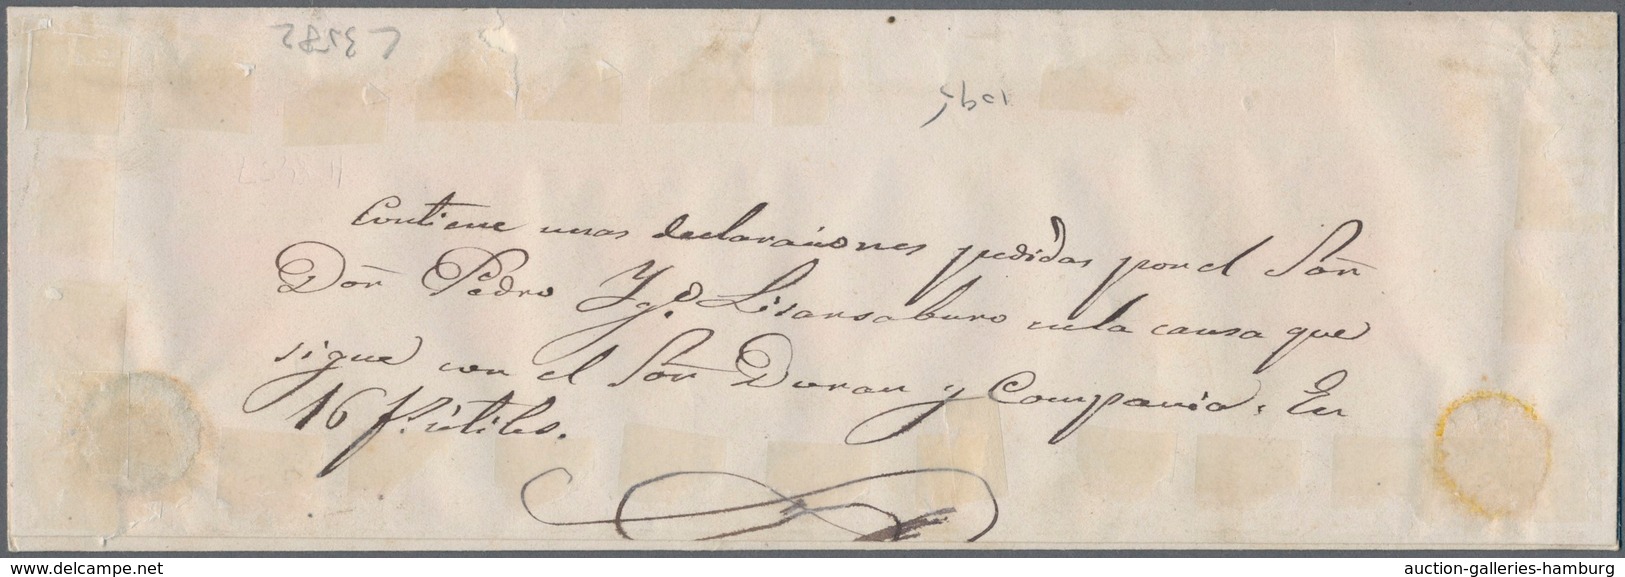 Contiene unas declaraciones pedidas por el Sor
Don Pedro Ygo. Lisarsaburo en la causa que
sigue con el Sor Duran y Compania. En
16 f. utiles.
www.delcampe.net
auction-galleries-hamburg